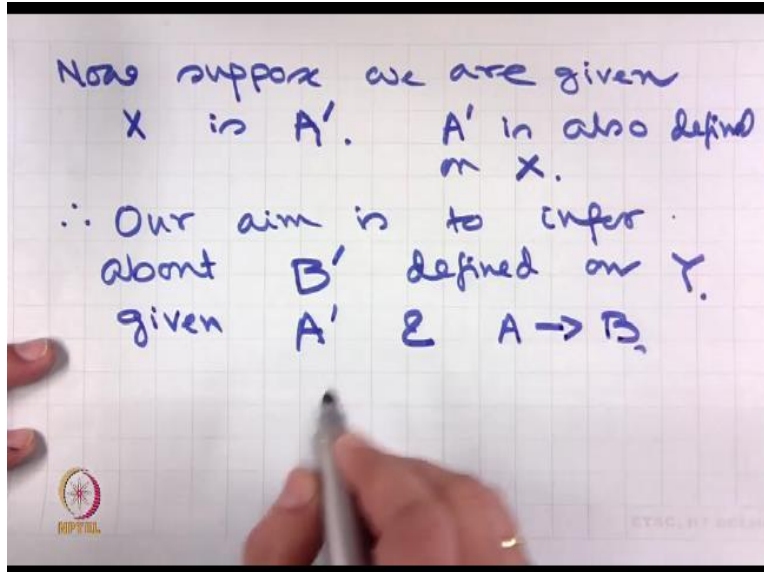 Now suppose we are given
X is A'. A' is also defined
on X.
∴ Our aim is to infer
about B' defined on Y.
given A' & A → B.
NPTEL